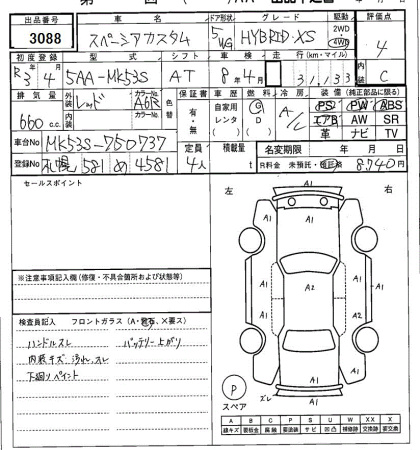 出品番号 車名 ドア形状 グレード 駆動 評価点
3088 スペーシアカスタム 5 WG HYBRID-XS 2WD 4WD 4
初度登録 型式 シフト 車検 走行(km・マイル) 内装
R3年4月 5AA-MK53S AT 8年4月 31,133 C
排気量 外装 レッド カラーNo. A6R 色替 保証書 車歴 燃料 冷房 装備(純正部品に限る)
660 c.c. 内装 カラーNo. 有・無 自家用 レンタ G D A/C PS PW ABS
エアB AW SR
革 ナビ TV
車台No MK53S-750737 定員 積載量 名変期限 年 月 日
登録No 札幌 581 め 4581 4人 t R料金 未預託・預託 8,740円
セールスポイント
左 右
A1
A1 A1
A1 A2 A1
A1
A1 A1
A1
ズレ
※注意事項記入欄(修復・不具合箇所および状態等)
検査員記入 フロントガラス(A・飛石、×要ス)
ハンドルスレ バッテリー上がり
内装キズ、汚れ、スレ
下廻りペイント
P
スペア
A B C P S U W X XX ×
線キズ 要板金 腐食 要塗装 サビ 凹凸 補修跡 交換跡 要交換